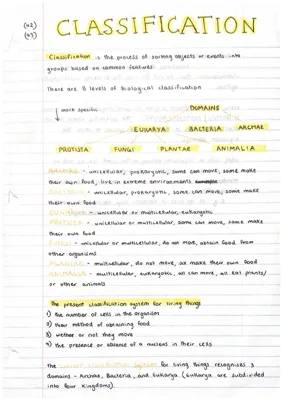 (42)
(43)
CLASSIFICATION
Classification is the process of sorting objects or events into
groups based on common features
There are 8 levels of biological classification
more specific
DOMAINS
EUKARYA BACTERIA ARCHAE
PROTISTA FUNGI PLANTAE ANIMALIA
ARCHAE - unicellular, prokaryotic, some can move, some make
their own food, live in extreme environments
BACTERIA - unicellular, prokaryotic, some can move, some make
their own food
EUKARYA - unicellular or multicellular, eukaryotic
PROTISTA - unicellular or multicellular, some can move, some make
their own food
FUNGI - unicellular or multicellular, do not move, obtain food from
other organisms
PLANTAE - multicellular, do not move, all make their own food
ANIMALIA - multicellular, eukaryotic, all can move, all eat plants/
or other animals
The present classification system for living things
1) the number of cells in the organism
2) their method of obtaining food
3) wether or not they move
4) the presence or absence of a nucleus in their cells
The current classification system for living things recognises 3
domains - Archae, Bacteria, and Eukarya (Eukarya are subdivided
into four Kingdoms).